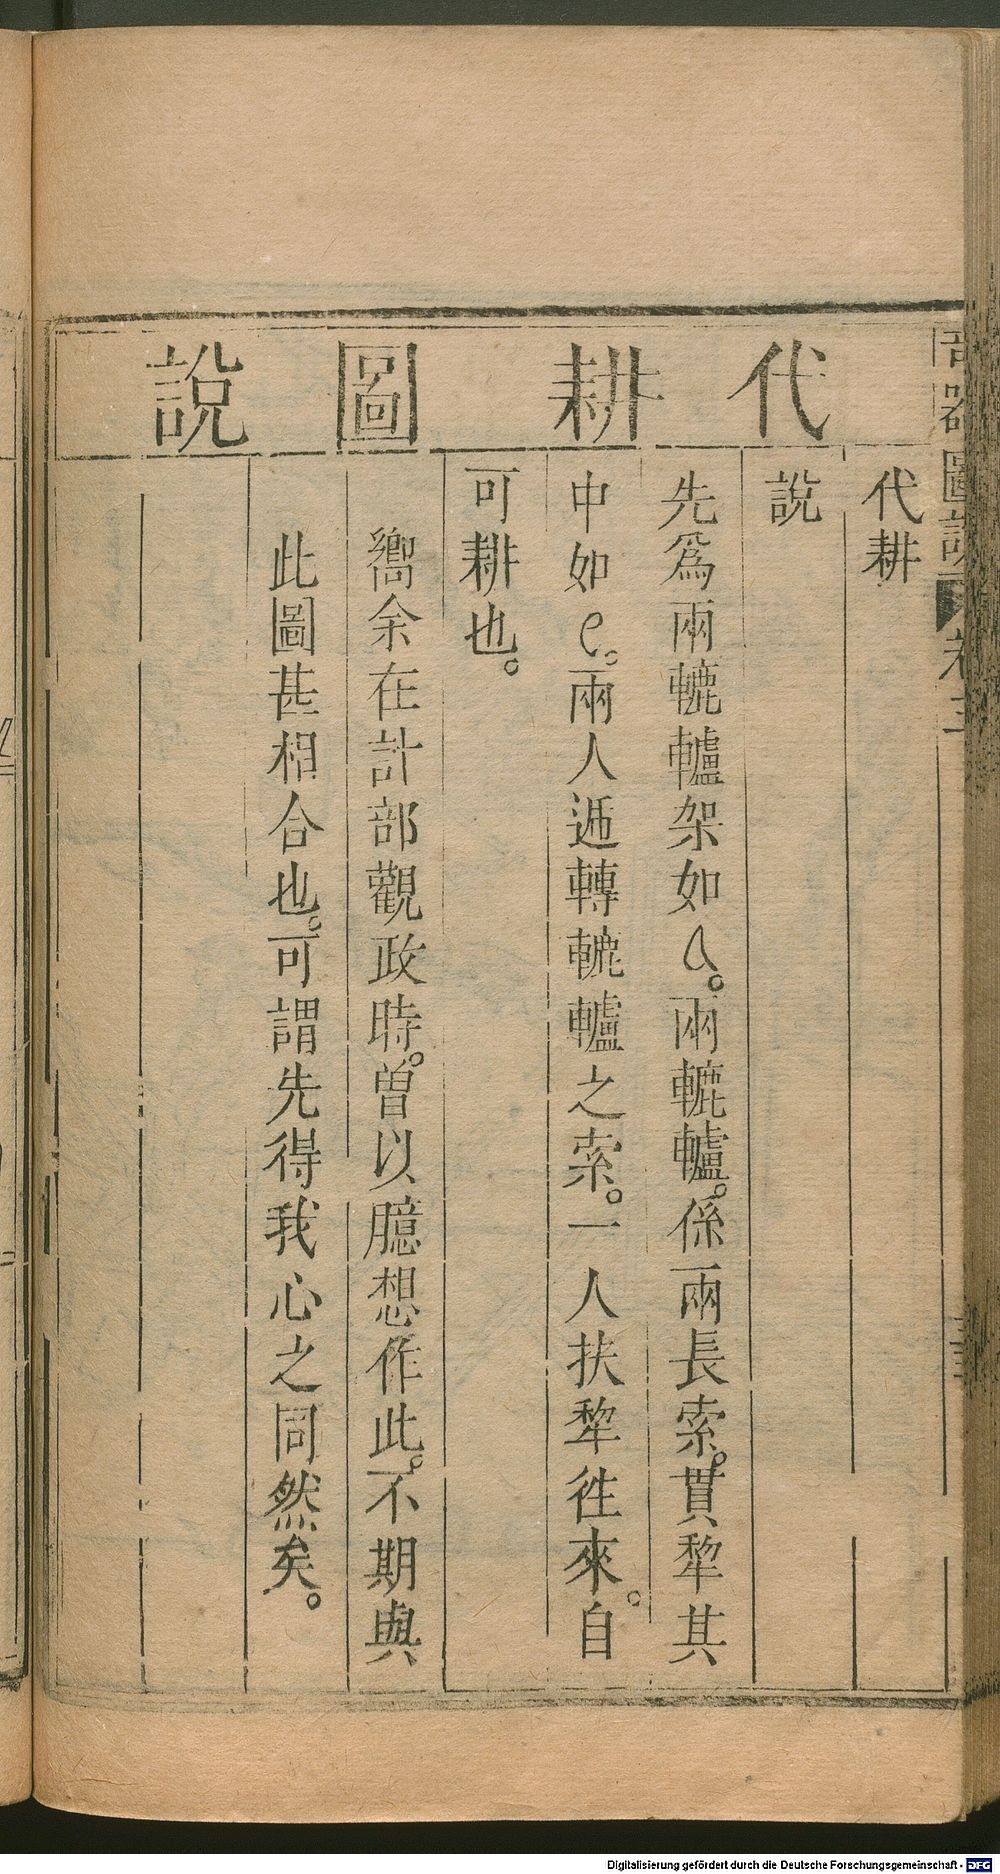 代耕圖說
代耕
說
先爲兩轆轤架如a。兩轆轤。係兩長索。貫犂其
中如e。兩人遞轉轆轤之索。一人扶犂徃來。自
可耕也。
嚮余在計部觀政時。曾以臆想作此。不期與
此圖甚相合也。可謂先得我心之同然矣。
器圖說 卷三
Digitalisierung gefördert durch die Deutsche Forschungsgemeinschaft - DFG